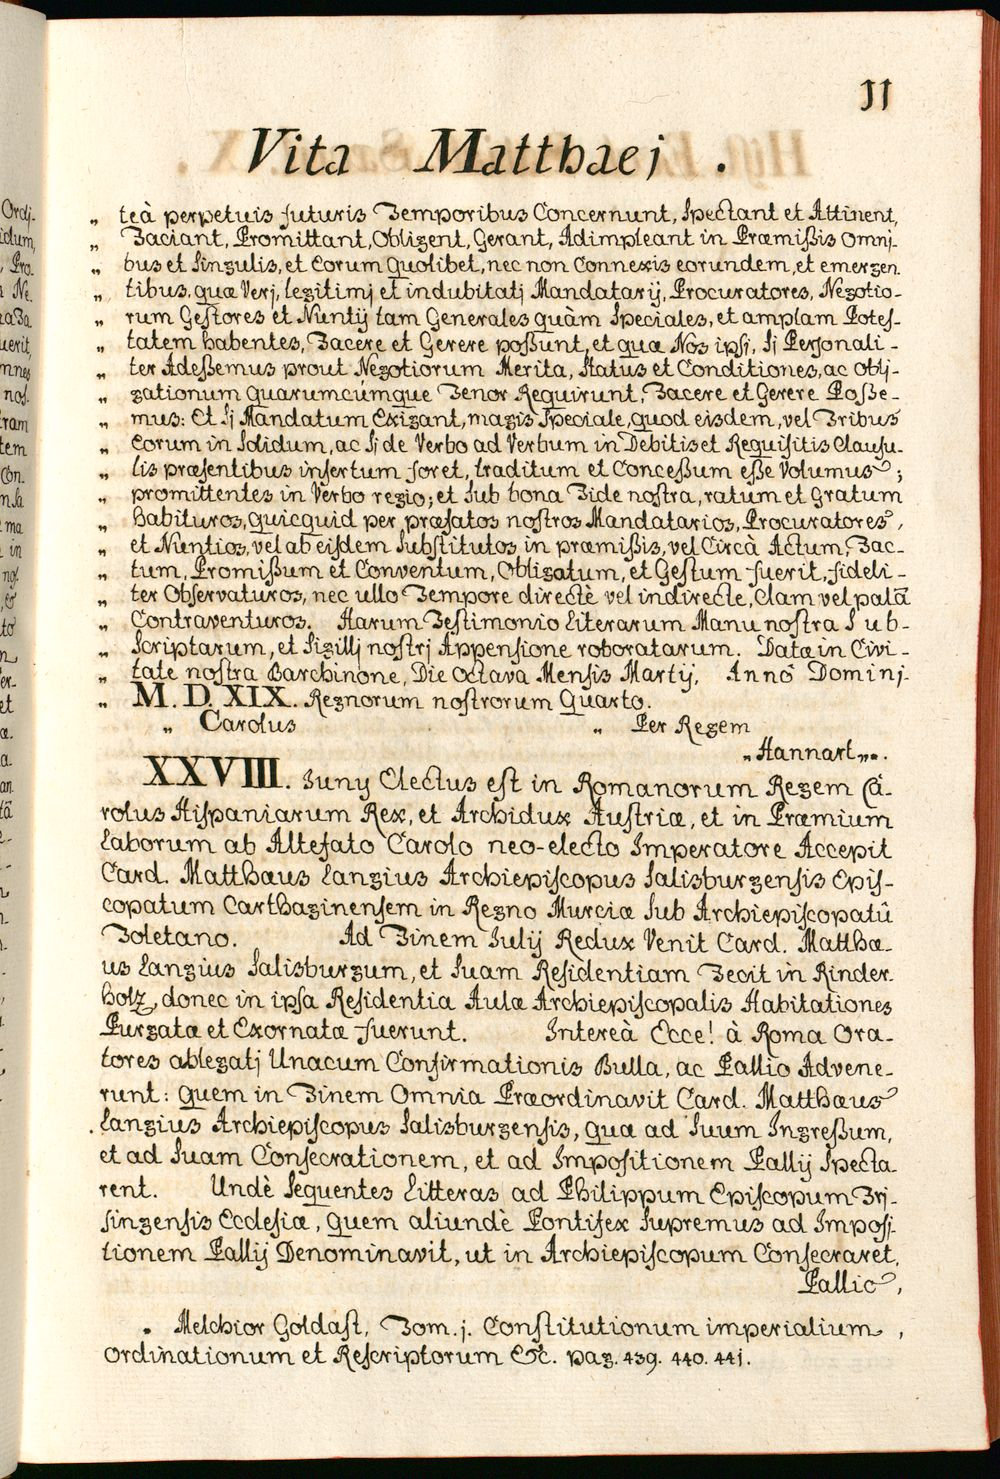 11
Vita Matthaej .
„ teà perpetuis futuris Temporibus Concernunt, Spectant et Attinent,
„ Faciant, Promittant, Obligent, Gerant, Adimpleant in Præmißis omnj-
„ bus et Singulis, et Eorum Quolibet, nec non Connexis eorundem, et emergen
„ tibus, quæ Verj, legitimj et indubitatj Mandatarij, Procuratores, Negotio-
„ rum Gestores et Nuntij tam Generales quàm Speciales, et amplam Potes-
„ tatem habentes, Facere et Gerere poßunt, et quæ Nos ipsi, Si Personali-
„ ter Adeßemus prout Negotiorum Merita, Status et Conditiones, ac Oblj-
„ gationum quarumcúmque Tenor Requirunt, Facere et Gerere Poße-
„ mus: Et Si Mandatum Exigant, magis Speciale, quod eisdem, vel Tribus
„ Eorum in Solidum, ac Si de Verbo ad Verbum in Debitis et Requisitis Clausu-
„ lis præsentibus insertum foret, traditum et Conceßum eße Volumus ;
„ promittentes in Verbo regio; et Sub bona Fide nostra, ratum et Gratum
„ Habituros, quicquid per præfatos nostros Mandatarios, Procuratores,
„ et Nuntios, vel ab eisdem Substitutos in præmißis, vel Circà Actum, Fac-
„ tum, Promißum et Conventum, Obligatum, et Gestum fuerit, fideli-
„ ter Observaturos, nec ullo Tempore directè vel indirecte, Clam vel palã
„ Contraventuros. Harum Testimonio Literarum Manu nostra Sub-
„ Scriptarum, et Sigillj nostrj Appensione roboratarum. Data in Civi-
„ tate nostra Barchinone, Die Octava Mensis Martij, Annô Dominj.
„ M. D. XIX. Regnorum nostrorum Quarto.
„ Carolus „ Per Regem
„ Hannart „.
XXVIII. Juny Electus est in Romanorum Regem Ca-
rolus Hispaniarum Rex, et Archidux Austriæ, et in Præmium
Laborum ab Altefato Carolo neo-electo Imperatore Accepit
Card. Matthæus Langius Archiepiscopus Salisburgensis Epis-
copatum Carthaginensem in Regno Murciæ Sub Archiepiscopatû
Toletano. Ad Finem Julij Redux Venit Card. Matthæ-
us Langius Salisburgum, et Suam Residentiam Fecit in Rinder-
holz, donec in ipsa Residentia Aulæ Archiepiscopalis Habitationes
Purgatæ et Exornatæ fuerunt. Intereà Ecce! à Roma Ora-
tores ablegatj Unacum Confirmationis Bulla, ac Pallio Advene-
runt: quem in Finem Omnia Præordinavit Card. Matthæus
Langius Archiepiscopus Salisburgensis, quæ ad Suum Ingreßum,
et ad Suam Consecrationem, et ad Impositionem Pallij Specta-
rent. Undè Sequentes Litteras ad Philippum Episcopum Frj-
singensis Ecclesiæ, Quem aliundè Pontifex Supremus ad Imposi-
tionem Pallij Denominavit, ut in Archiepiscopum Consecraret,
Pallio,
. Melchior Goldast, Tom. j. Constitutionum imperialium ,
Ordinationum et Rescriptorum &c. pag. 439. 440. 441.